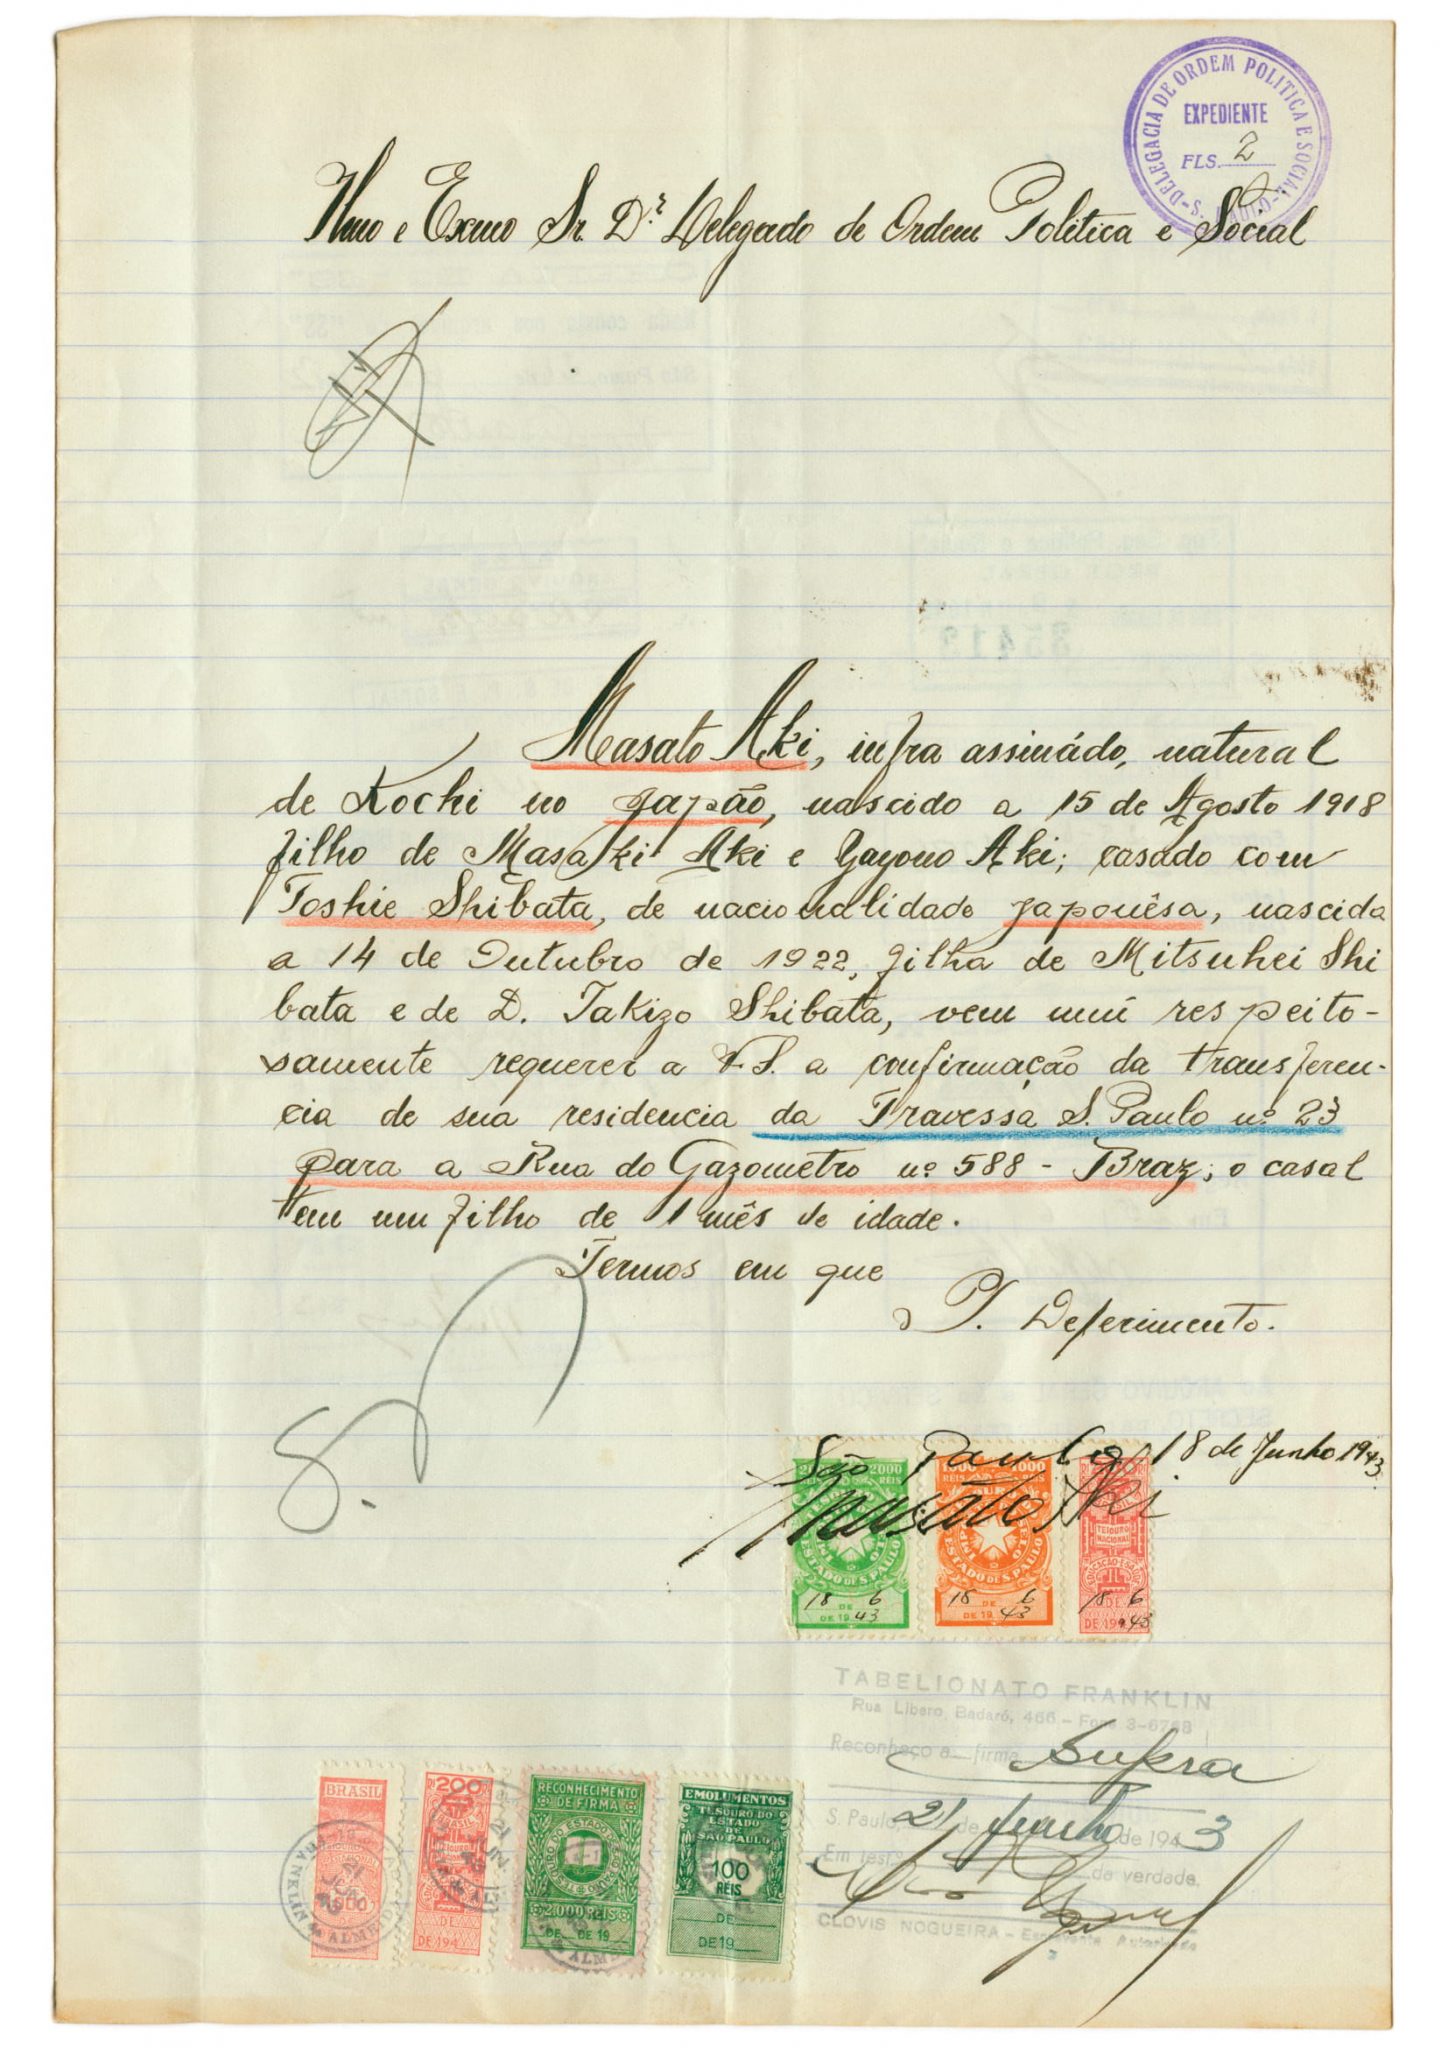 DELEGACIA DE ORDEM POLITICA E SOCIAL - S. PAULO -
EXPEDIENTE
FLS. 2
Illmo e Exmo Sr. Dr. Delegado de Ordem Politica e Social
Masato Aki, infra assinádo, natural
de Kochi no Japão, nascido a 15 de Agosto 1918
filho de Masaki Aki e Yayono Aki; casado com
Toshie Shibata, de nacionalidade japonêsa, nascida
a 14 de Outubro de 1922, filha de Mitsuhei Shi
bata e de D. Takizo Shibata, vem mui respeito-
samente requerer a V.S. a confirmação da transferen-
cia de sua residencia da Travessa S. Paulo nº 23
para a Rua do Gazometro nº 588 - Braz; o casal
tem um filho de 1 mês de idade.
Termos em que
P. Deferimento.
São Paulo, 18 de Junho 1943
Masato Aki
2000 2000
RÉIS RÉIS
1000 1000
TESOURO NACIONAL
EDUCAÇÃO E SAUDE
ESTADO DE S. PAULO
ESTADO DE S. PAULO
18 DE 6 DE 1943
18 DE 6 DE 1943
18 6 DE DE 1943
TABELIONATO FRANKLIN
Rua Libero Badaró, 466 - Fone 3-6788
Reconheço a firma supra
S. Paulo, 21 de Junho de 1943
Em test. da verdade.
CLOVIS NOGUEIRA - Escrevente Autorizado
BRASIL
200
BRASIL
DE
DE 194
RECONHECIMENTO
DE FIRMA
TESOURO DO ESTADO DE SÃO PAULO
2.000 RÉIS
DE DE 19
EMOLUMENTOS
TESOURO DO
ESTADO
DE
SÃO PAULO
100
RÉIS
DE
DE 19